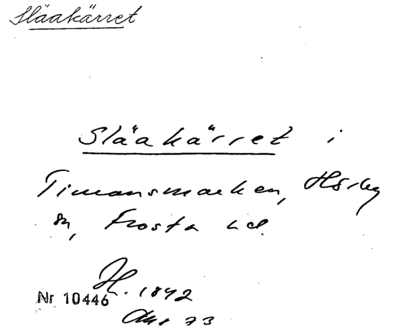 Släakärret
Släakärret i
Timansmarken, Hörby
sn, Frosta hd.
H. 1842
Nr 10446
73